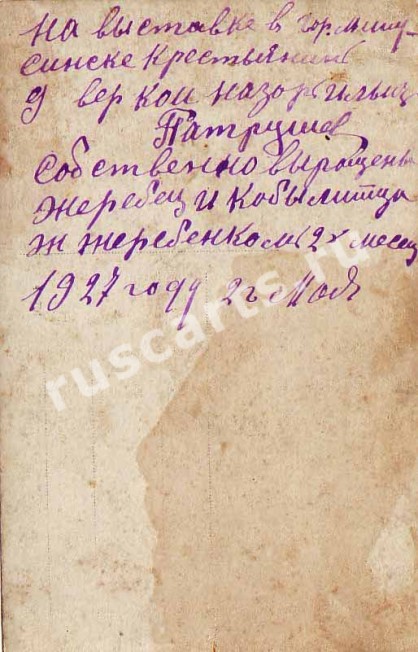 на выставке в гор. Мину-
синске Крестьянин
д вер кои
Патрушев
Собственно выращены
жеребец и Кобылитца
ж жеребенком 2х месец
1927 году 2го Мая
ruscarts.ru